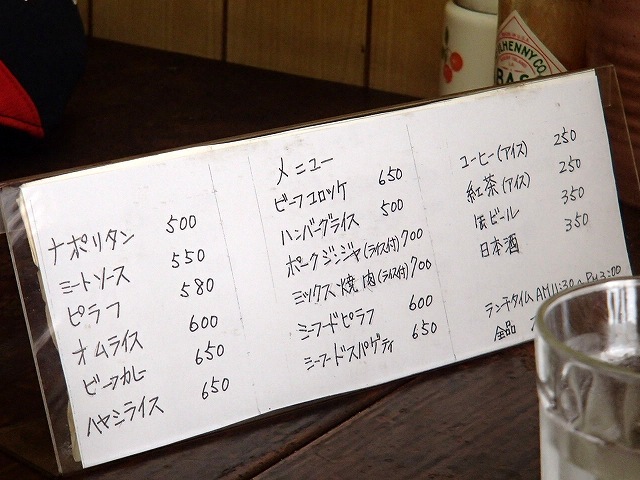 メニュー
ナポリタン 500
ミートソース 550
ピラフ 580
オムライス 600
ビーフカレー 650
ハヤシライス 650
ビーフコロッケ 650
ハンバーグライス 500
ポークジンジャ(ライス付) 700
ミックス焼肉(ライス付) 700
シーフードピラフ 600
シーフードスパゲティ 650
コーヒー(アイス) 250
紅茶(アイス) 250
缶ビール 350
日本酒 350
ランチタイム AM11:30~PM3:00
全品
HENNY CO.